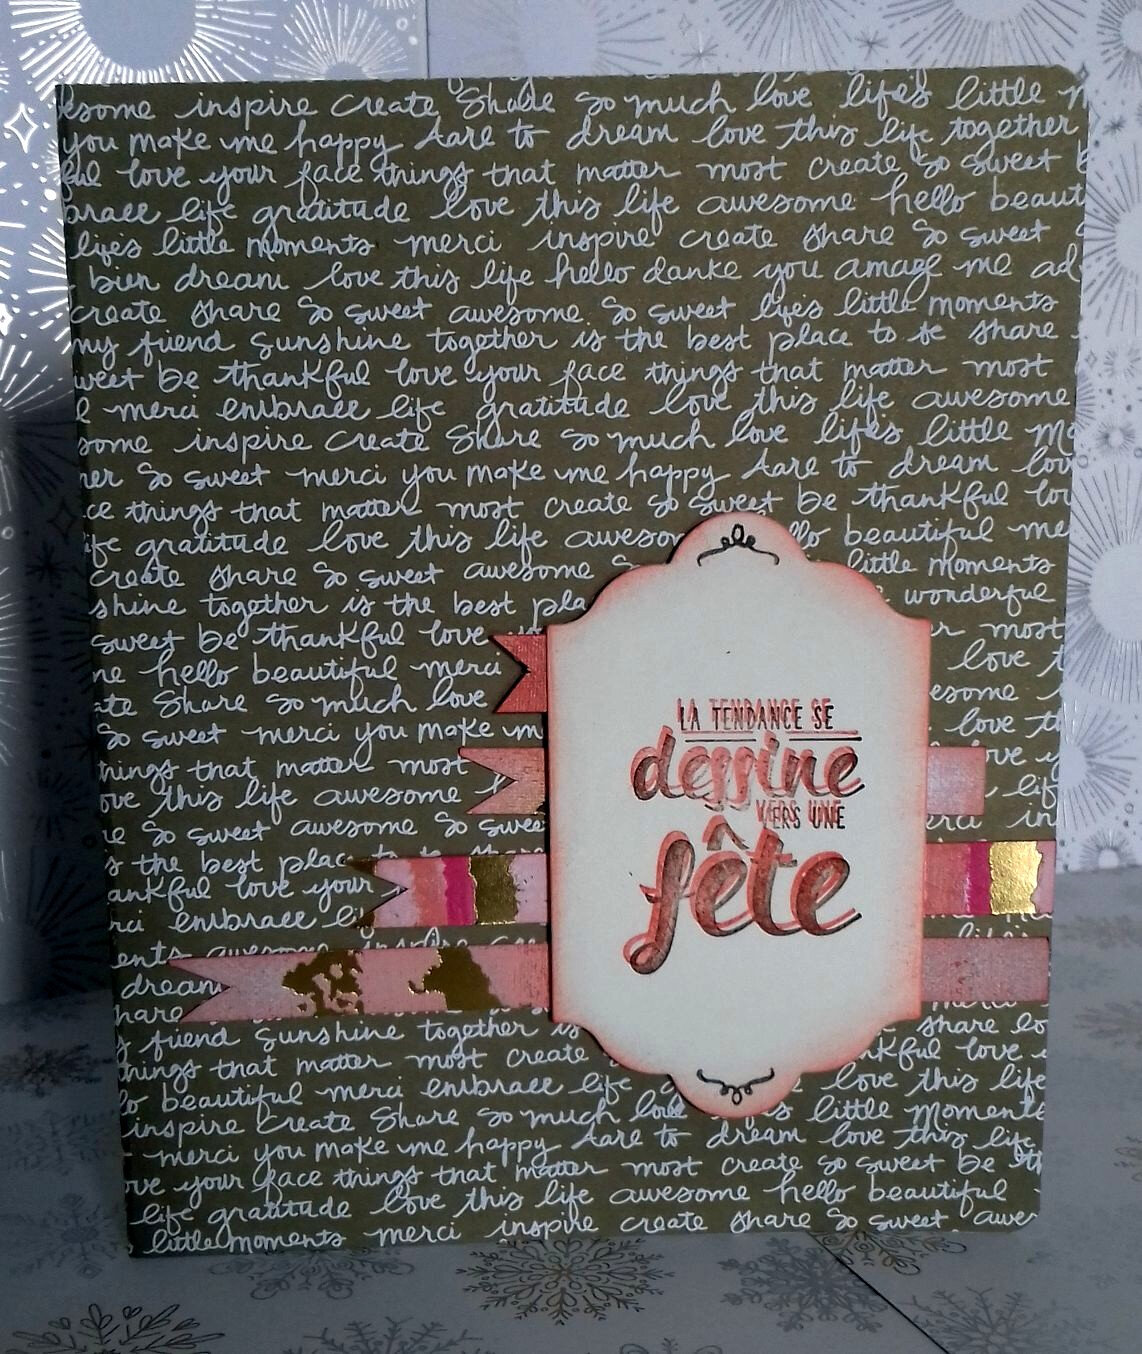 some inspire create Share So much love life's little
you make me happy dare to dream love this life together
love your face things that matter most create So sweet
brace life gratitude love this life awesome hello beaut
life's little moments merci inspire create share So sweet
bien dream love this life hello danke you amaze me ad
create share So sweet awesome So sweet life's little moments
my friend Sunshine together is the best place to be share
weet be thankful love your face things that matter most
merci embrace life gratitude love this life awesome
some inspire create Share So much love life's little Mo
her So sweet merci you make me happy dare to dream lov
ce things that matter most create So sweet be thankful lov
ife gratitude love this life aweso lo beautiful me
create share So sweet awesome S little Moments
shine together is the best pla e wonderful
sweet be thankful love r most
ne hello beautiful merci love t
ate Share So much love esome
So sweet merci you make m love th
things that matter most love y
ove this life awesome life
LA TENDANCE SE
dessine
VERS UNE
fête
e So sweet awesome So swee erci in
s the best place to
ankful love your
rci embrace lif
ents awesome inspire
dream
hare
my friend Sunshine together is share lo
things that matter most create nkful love
lo beautiful merci embrace life love this life
inspire create Share So much love s little Moments
merci you make me happy dare to dream love this life
ove your face things that matter most create So sweet be th
life gratitude love this life awesome hello beautiful
little moments merci inspire create share So sweet awe